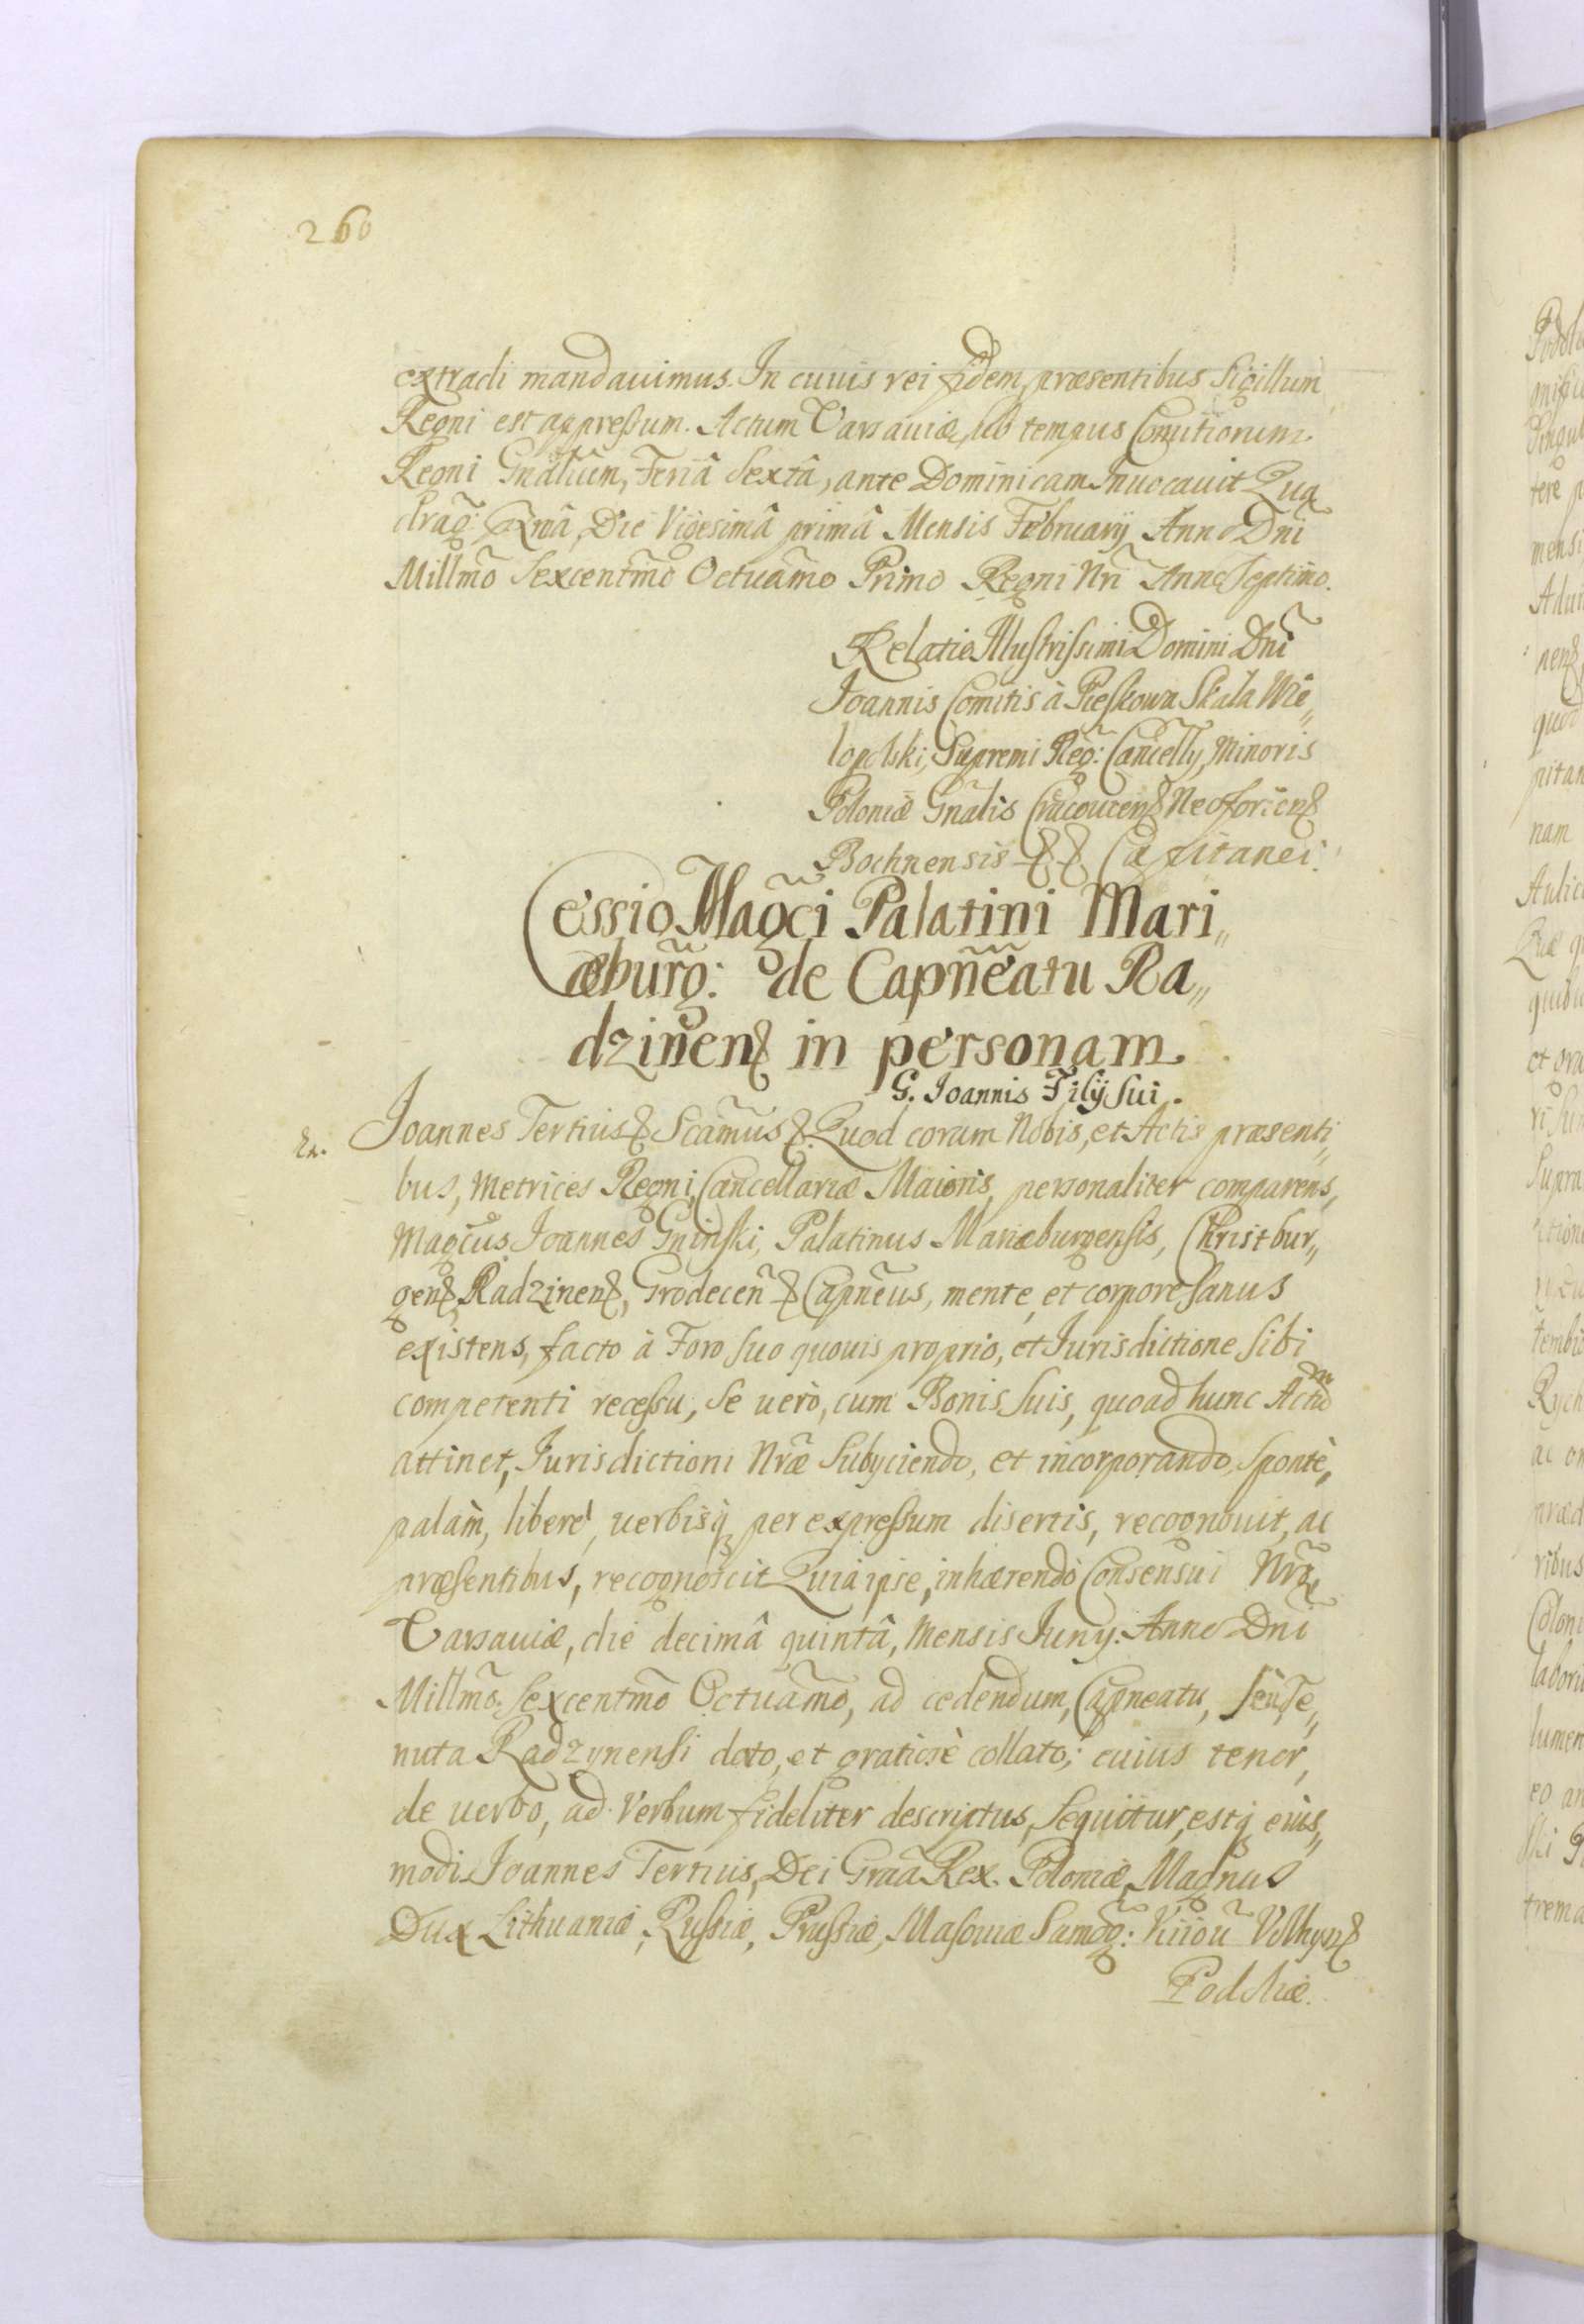 260
extradi mandauimus. In cuuis rei fidem, præsentibus Sigillum
Regni est appressum. Actum Varsauiæ, sub tempus Comitiorum
Regni Gnãlium, Feriâ Sextâ, ante Dominicam Inuocauit Qua
drag: Die Vigesimâ primâ Mensis February Anno Dni
Millmõ Sexcentmõ Octuamo Primo Regni Nri Anno Septimo.
Relatio Illustrissimi Domini Dni
Joannis Comitis à Pieskowa Skala Wie„
lopolski, Supremi Reg: Cancelly, Minoris
Poloniæ Gnãlis Cracouien Neoforien
Bochnensis Capitanei.
Cessio Magci Palatini Mari„
æburg: de Capñeatu Ra„
dzinen in personam
G. Joannis Filij Sui.
Joannes Tertius Scamus Quod coram Nobis, et Actis præsenti„
bus, Metrices Regni, Cancellariæ Maioris, personaliter comparens,
Magcus Joannes Gninski, Palatinus Mariæburgensis, Christbur„
gen, Radzinen, Grodecen Capneus, mente, et corpore Sanus
existens, facto à Foro Suo quouis proprio, et Jurisdictione Sibi
competenti recessu, Se uerò, cum Bonis Suis, quoad hunc Actũ
attinet, Jurisdictioni Nræ Subyciendo, et incorporando, Spontè,
palàm, liberè, uerbisq per expressum disertis, recognouit, ac
præsentibus, recognoscit Quia ipse, inhærendo Consensui Nro,
Varsauiæ, die decimâ quintâ, Mensis Juny Anno Dni
Millmõ Sexcentmõ Octuamo, ad cedendum, Capneatu, Seu Te„
nuta Radzynensi dato, et gratiosè collato; cuius tenor,
de uerbo, ad Verbum fideliter descriptus, Sequitur, estq eius„
modi Joannes Tertius, Dei Graã Rex Poloniæ, Magnus
Dux Lithuaniæ, Russiæ, Prussiæ, Masouiæ Samog: Kiiou Volhyn
Podliæ.